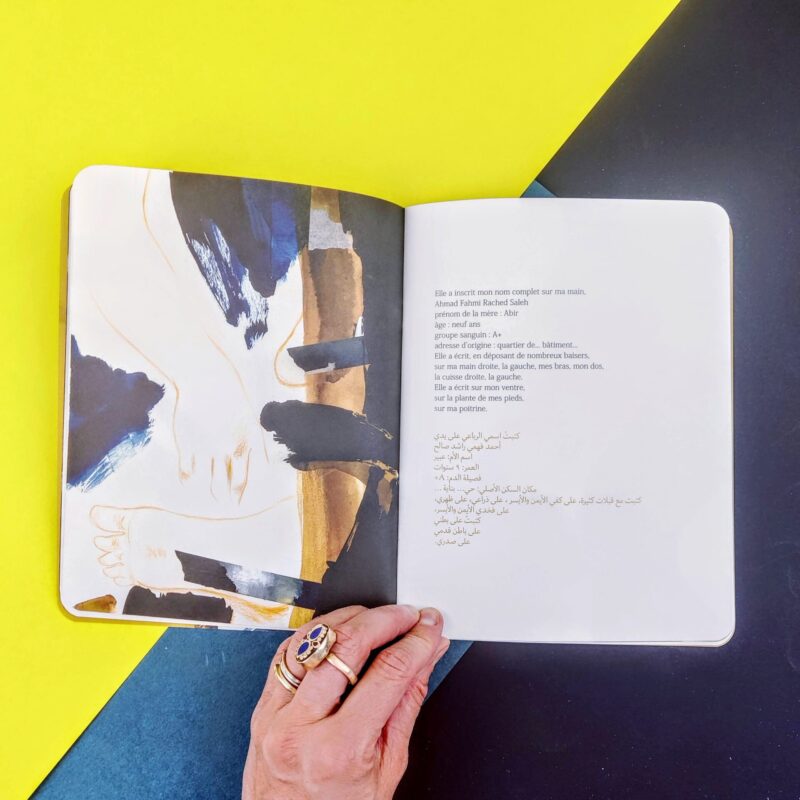 Elle a inscrit mon nom complet sur ma main,
Ahmad Fahmi Rached Saleh
prénom de la mère : Abir
âge : neuf ans
groupe sanguin : A+
adresse d'origine : quartier de... bâtiment...
Elle a écrit, en déposant de nombreux baisers,
sur ma main droite, la gauche, mes bras, mon dos,
la cuisse droite, la gauche,
Elle a écrit sur mon ventre,
sur la plante de mes pieds,
sur ma poitrine.
كتبتْ اسمي الرباعي على يدي
أحمد فهمي راشد صالح
اسم الأم: عبير
العمر: ٩ سنوات
فصيلة الدم: A+
مكان السكن الأصلي: حي... بناية...
كتبت مع قبلات كثيرة، على كفي الأيمن والأيسر، على ذراعي، على ظهري،
على فخذي الأيمن والأيسر،
كتبتْ على بطني
على باطن قدمي
على صدري.